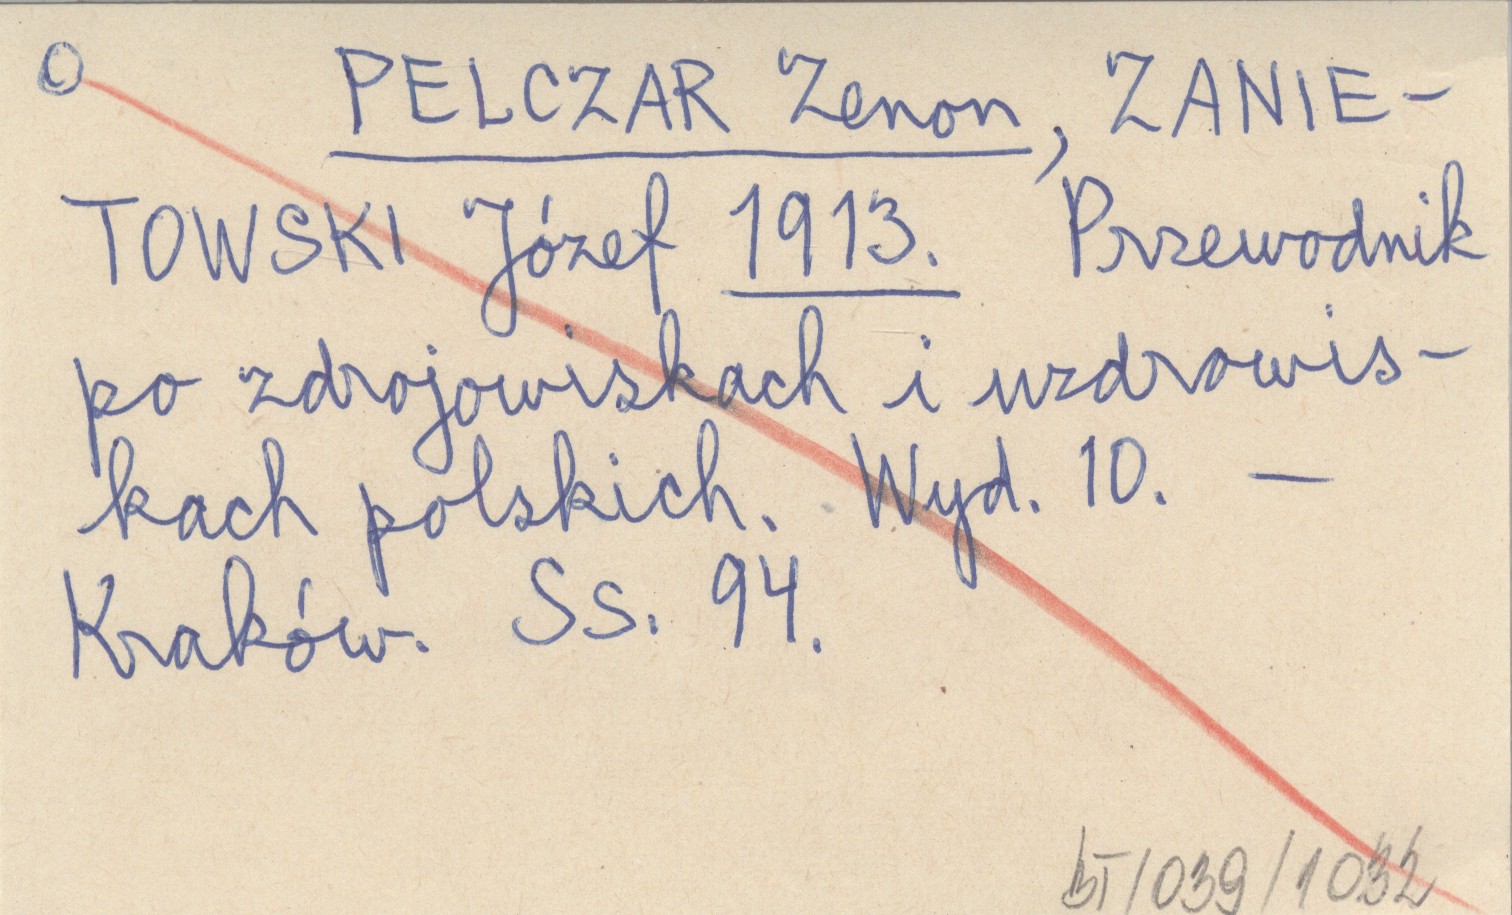 O PELCZAR Zenon, ZANIE-
TOWSKI Józef 1913. Przewodnik
po zdrojowiskach i uzdrowis-
kach polskich. Wyd. 10. —
Kraków. Ss. 94.
bT/039/1032